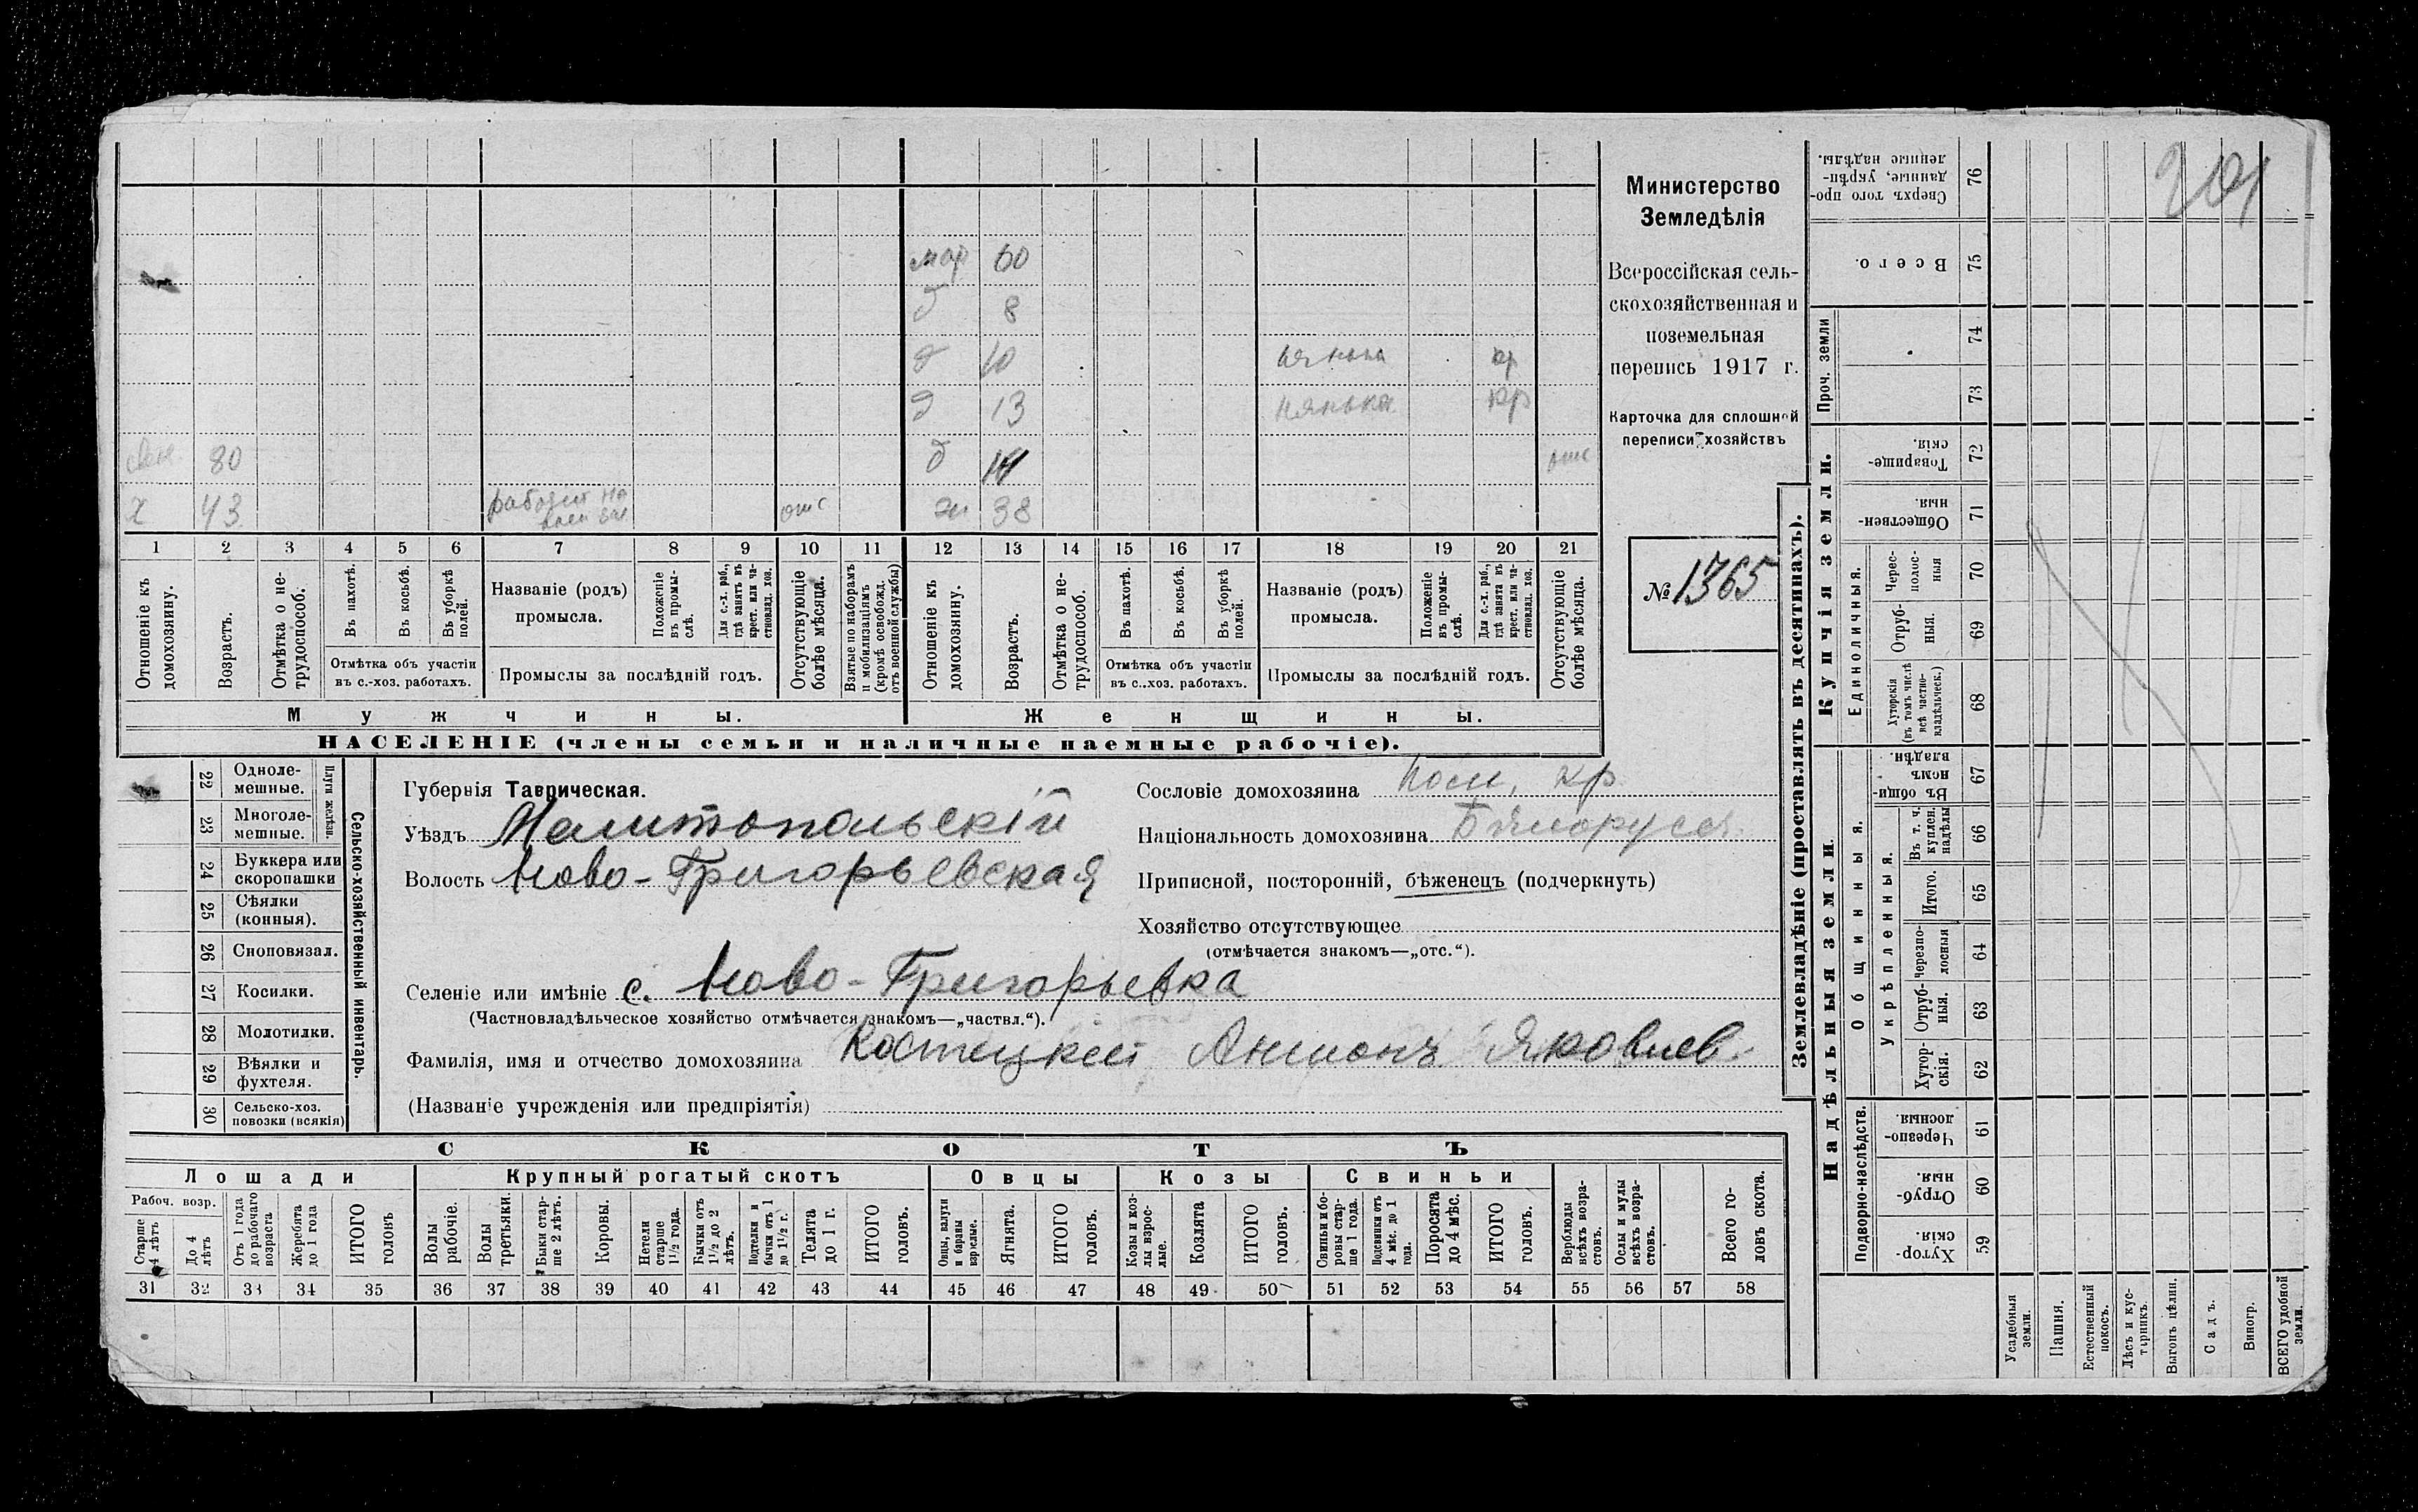 мар 60
д 8
д 10 нянька кр
д 13 нянька кр
80 д отс
х 43 работ на отс ж 38
1 2 3 4 5 6 7 8 9 10 11 12 13 14 15 16 17 18 19 20 21
Отношеніе къ домохозяину.
Возрастъ.
Отмѣтка о не-
трудоспособ.
Въ пахотѣ.
Въ косьбѣ.
Въ уборкѣ
полей.
Отмѣтка объ участіи
въ с.-хоз. работахъ.
Названіе (родъ)
промысла.
Положеніе
въ промы-
слѣ.
Для с.-х. раб.,
гдѣ занятъ въ
крест. или ча-
стновлад. хоз.
Промыслы за послѣдній годъ.
Отсутствующіе
болѣе мѣсяца.
Взятые по наборамъ
и мобилизаціямъ
(кромѣ освобожд.
отъ военной службы)
Отношеніе къ
домохозяину.
Возрастъ.
Отмѣтка о не-
трудоспособ.
Въ пахотѣ.
Въ косьбѣ.
Въ уборкѣ
полей.
Отмѣтка объ участіи
въ с.-хоз. работахъ.
Названіе (родъ)
промысла.
Положеніе
въ промы-
слѣ.
Для с.-х. раб.,
гдѣ занята въ
крест. или ча-
стновлад. хоз.
Промыслы за послѣдній годъ.
Отсутствующіе
болѣе мѣсяца.
Мужчины. Женщины.
НАСЕЛЕНІЕ (члены семьи и наличные наемные рабочіе).
Министерство
Земледѣлія
Всероссійская сель-
скохозяйственная и
поземельная
перепись 1917 г.
Карточка для сплошной
переписи хозяйствъ
№ 1365
22 Одноле-
мешные.
23 Многоле-
мешные.
Плуги желѣзн.
24 Буккера или
скоропашки
25 Сѣялки
(конныя).
26 Сноповязал.
27 Косилки.
28 Молотилки.
29 Вѣялки и
фухтеля.
30 Сельско-хоз.
повозки (всякія)
Сельско-хозяйственный инвентарь.
Губернія Таврическая.
Уѣздъ Мелитопольскій
Волость Ново-Григорьевская
Сословіе домохозяина пос. кр
Національность домохозяина Бѣлоруссъ
Приписной, посторонній, бѣженецъ (подчеркнуть)
Хозяйство отсутствующее
(отмѣчается знакомъ—„отс.“).
Селеніе или имѣніе с. Ново-Григорьевка
(Частновладѣльческое хозяйство отмѣчается знакомъ—„частвл.“).
Фамилія, имя и отчество домохозяина Костецкій Антонъ Яковлев.
(Названіе учрежденія или предпріятія)
СКОТЪ
Лошади Крупный рогатый скотъ Овцы Козы Свиньи
Рабоч. возр.
Старше
4 лѣтъ
До 4
лѣтъ
Отъ 1 года
до рабочаго
возраста
Жеребята
до 1 года
ИТОГО
головъ
Волы
рабочіе.
Волы
третьяки.
Быки стар-
ше 2 лѣтъ.
Коровы.
Нетели
старше
1½ года.
Бычки отъ
1½ до 2
лѣтъ.
Подтелки и
бычки отъ 1
до 1½ г.
Телята
до 1 г.
ИТОГО
головъ.
Овцы, валухи
и бараны
взрослые.
Ягнята.
ИТОГО
головъ.
Козы и коз-
лы взрос-
лые.
Козлята
ИТОГО
головъ.
Свиньи и бо-
ровы стар-
ше 1 года.
Подсвинки отъ
4 мѣс. до 1
года.
Поросята
до 4 мѣс.
ИТОГО
головъ.
Верблюды
всѣхъ возра-
стовъ.
Ослы и мулы
всѣхъ возра-
стовъ.
Всего го-
ловъ скота.
31 32 33 34 35 36 37 38 39 40 41 42 43 44 45 46 47 48 49 50 51 52 53 54 55 56 57 58
Землевладѣніе (проставлять въ десятинахъ).
Сверхъ того про-
данные, укрѣп-
ленные надѣлы. 76
Всего. 75
Проч. земли
74
73
Купчія земли.
Товарище-
скія. 72
Обществен-
ныя. 71
Единоличныя.
Черес-
полос-
ныя 70
Отруб-
ныя. 69
Хуторскія
(въ томъ числѣ
всѣ частно-
владѣльческ.) 68
Надѣльныя земли.
Общинныя.
Въ общи-
номъ
владѣн. 67
Укрѣпленныя.
Въ т. ч.
куплен.
надѣлы 66
Итого. 65
Черезпо-
лосныя 64
Отруб-
ныя. 63
Хутор-
скія. 62
Подворно-наслѣдств.
Черезпо-
лосныя. 61
Отруб-
ныя. 60
Хутор-
скія. 59
Усадебныя
земли.
Пашня.
Естественный
покосъ.
Лѣсъ и кус-
тарникъ.
Выгонъ цѣлин.
Садъ.
Виногр.
ВСЕГО удобной
земли.